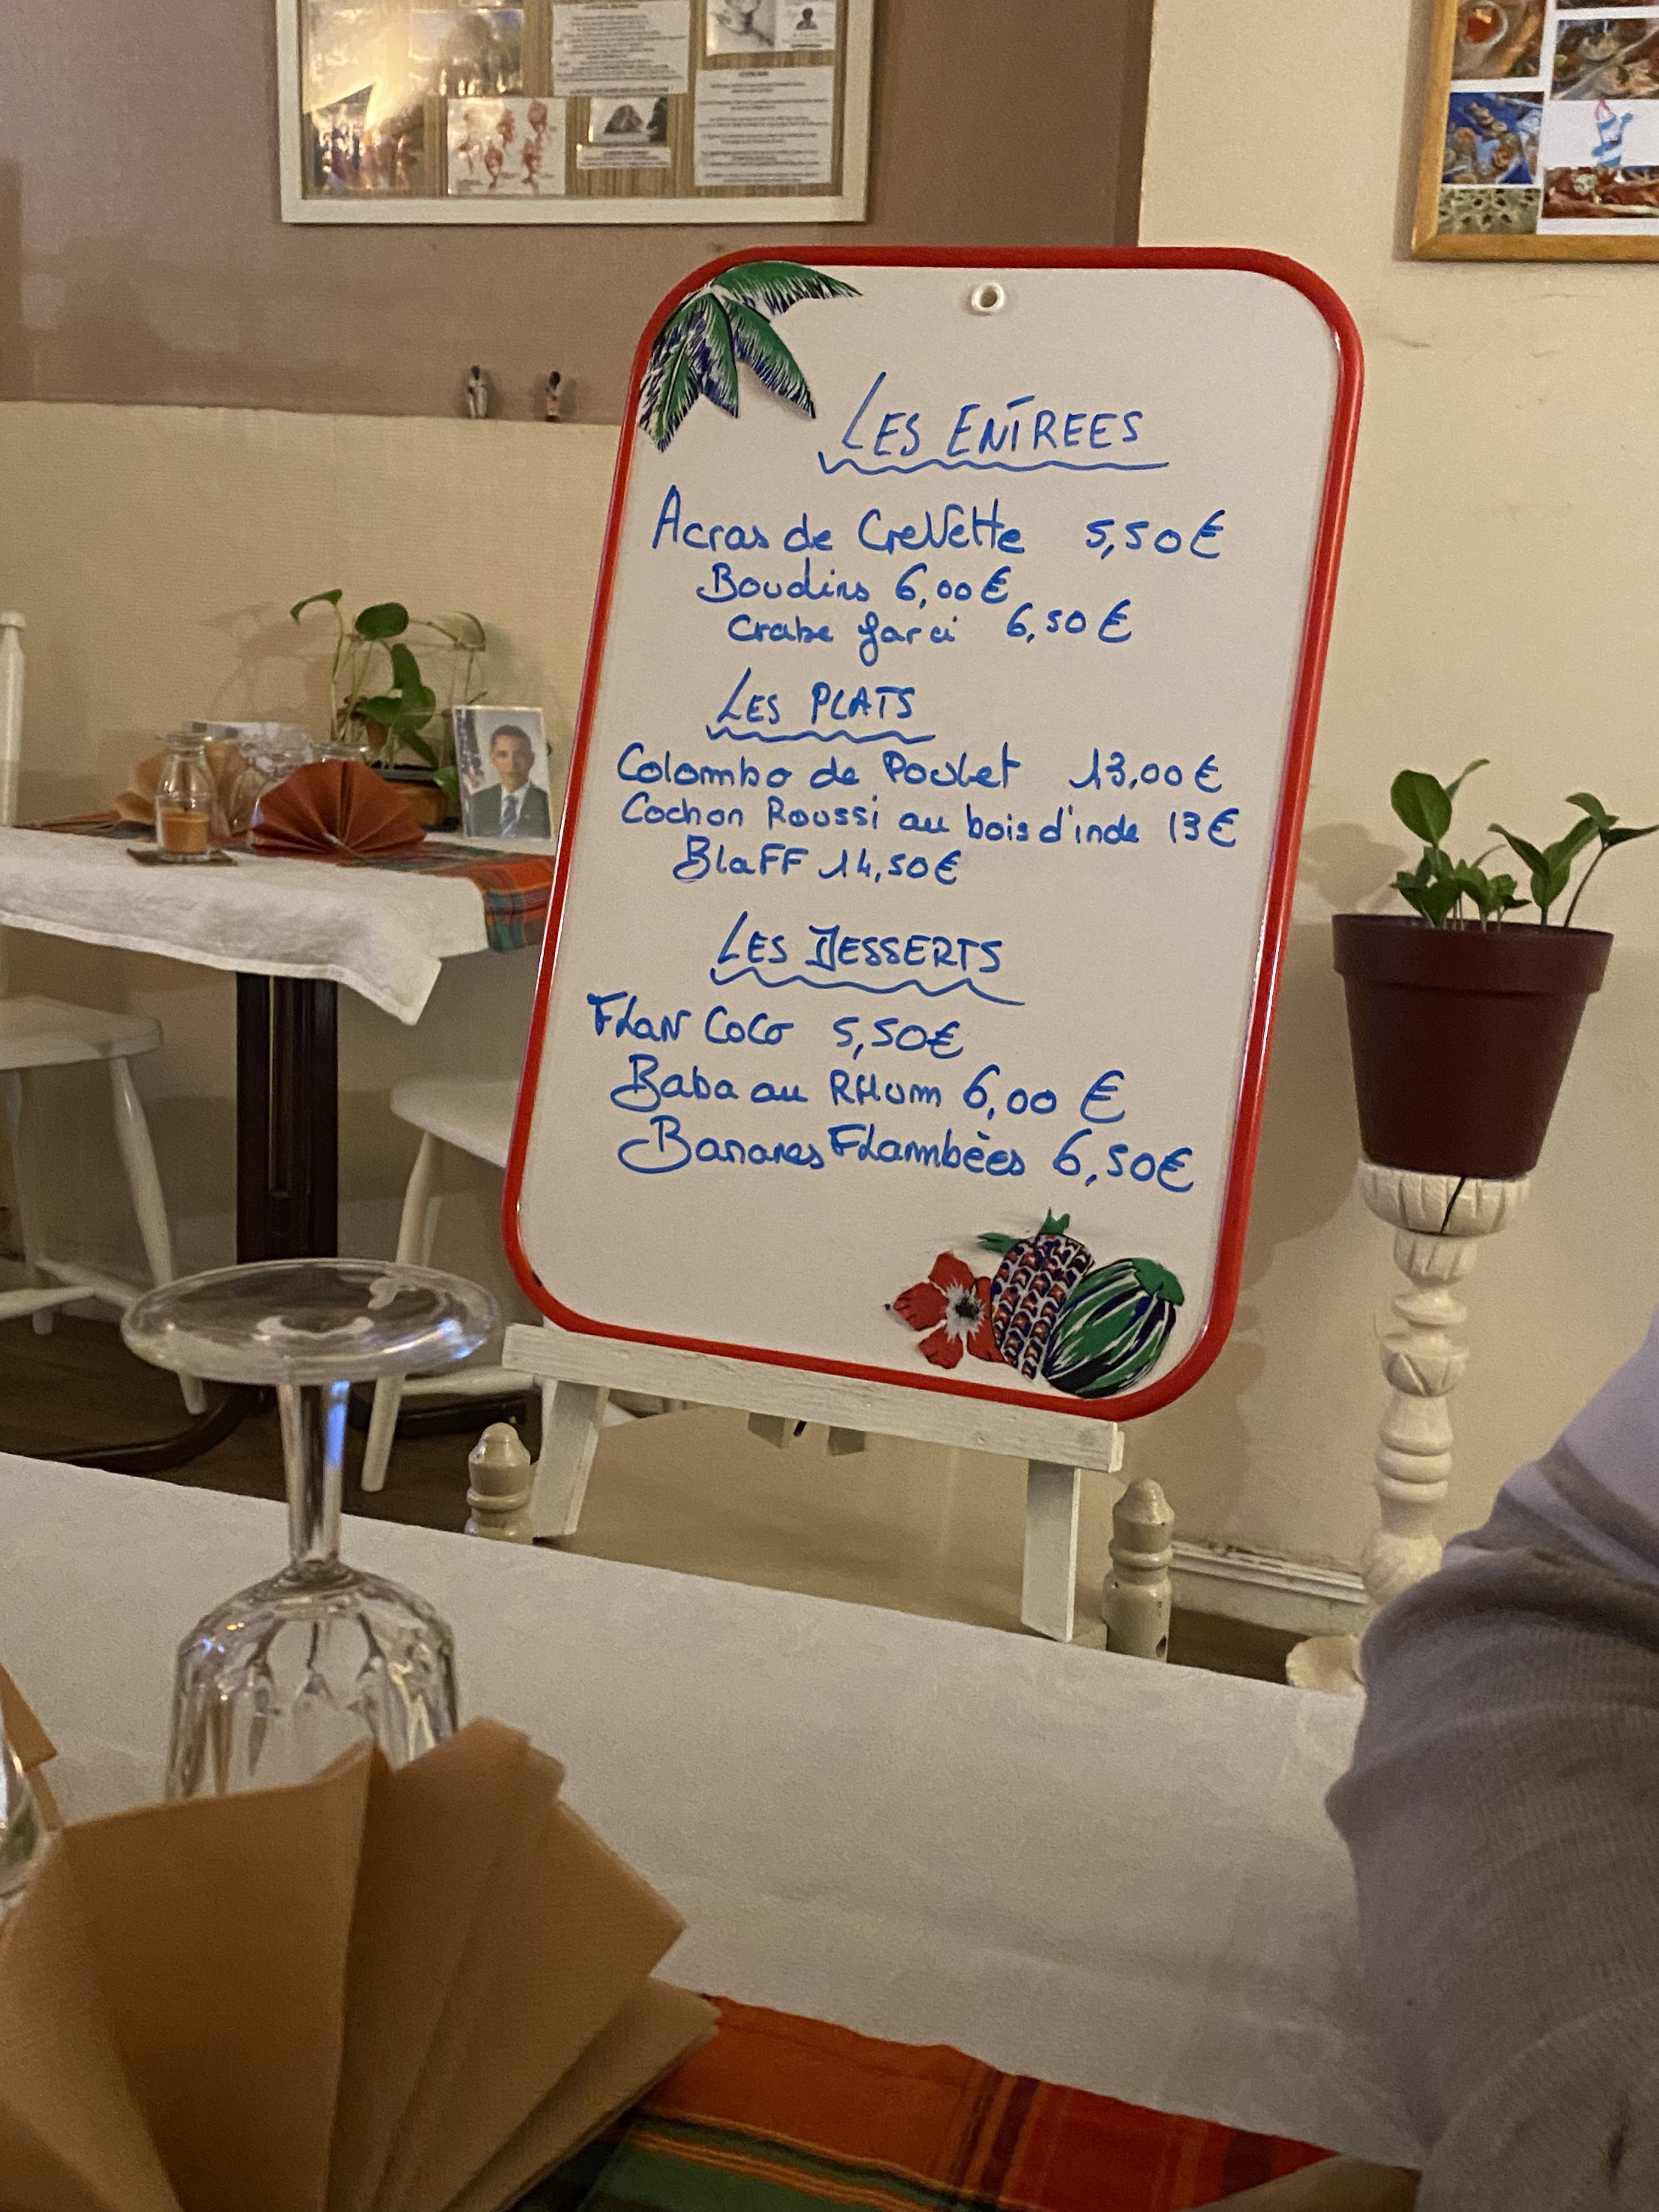 LES ENTREES
Acras de CreVette 5,50€
Boudins 6,00€
Crabe farci 6,50€
LES PLATS
Colombo de Poulet 13,00€
Cochon Roussi au bois d'inde 13€
BlaFF 14,50€
LES DESSERTS
FLaN CoCo 5,50€
Baba au RHum 6,00 €
Bananes FLambèes 6,50€